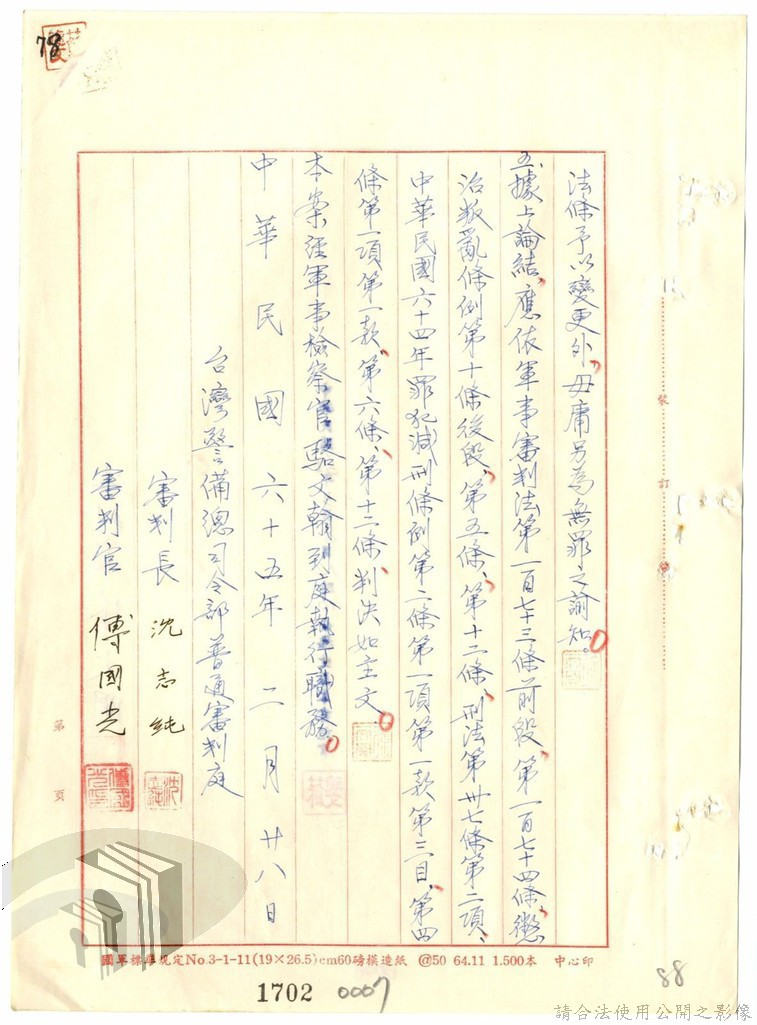 78
法條予以變更外，毋庸另為無罪之諭知。
五、據上論結，應依軍事審判法第一百七十三條前段、第一百七十四條，懲
治叛亂條例第十條後段、第五條、第十二條，刑法第卅七條第二項、
中華民國六十四年罪犯減刑條例第二條第一項第一款第三目、第四
條第一項第一款、第六條、第十三條，判決如主文。
本案經軍事檢察官駱文翰到庭執行職務。
中華民國六十五年二月廿八日
台灣警備總司令部普通審判庭
審判長 沈志純
審判官 傅國光
裝 訂 線
第 頁
國軍標準規定No.3-1-11(19×26.5)cm60磅模造紙 @50 64.11 1.500本 中心印
1702 0007
88
請合法使用公開之影像